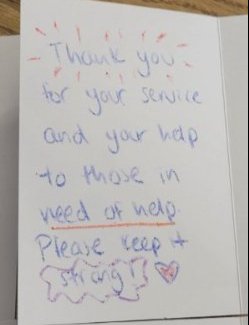 Thank you
for your service
and your help
to those in
need of help.
Please keep it
strong!